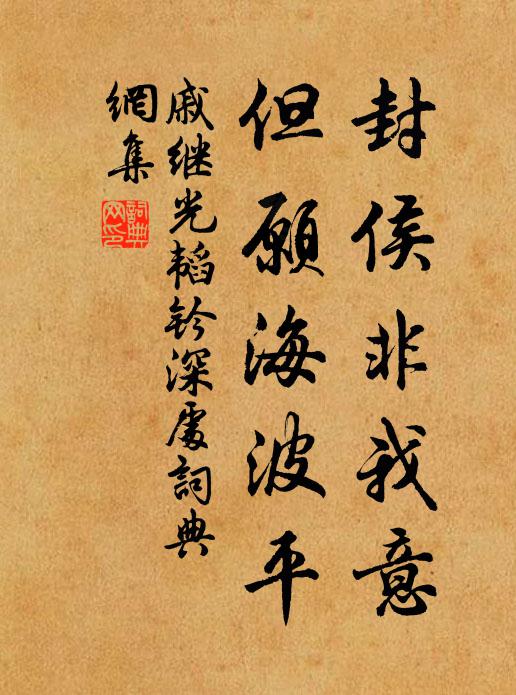 封侯非我意
但願海波平
戚继光韬鈐深處詞典
網集
詞典
网印